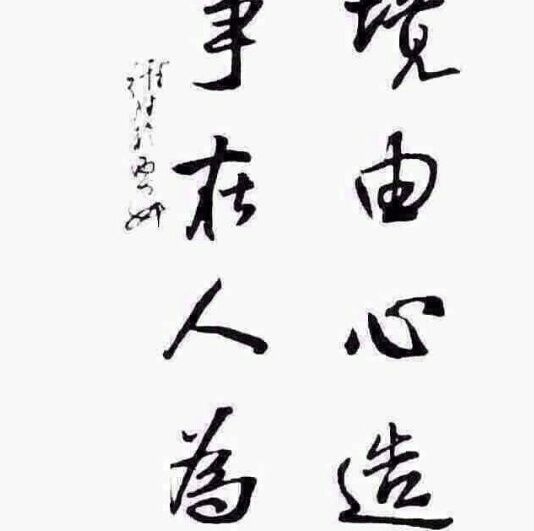 境由心造
事在人為